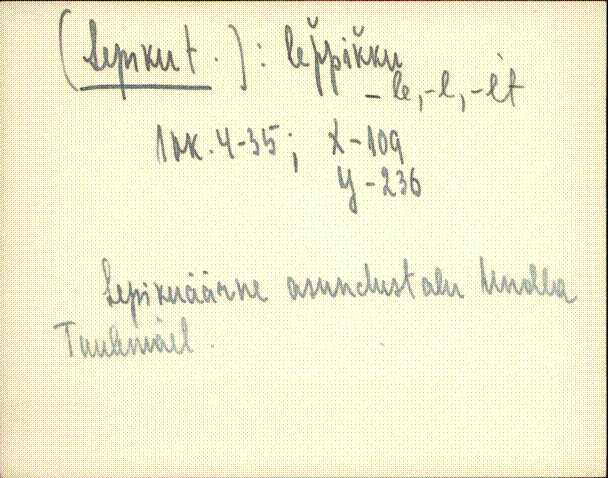 (Lepiku t.): lep̆pik̆ku
-le, -l, -ĺt
1 nk. 4-35; X-109
y-236
Lepikuäärne asundustalu Undla
Tuulemäel.